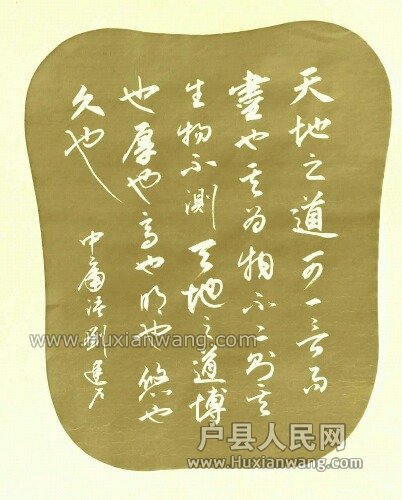 天地之道可一言而
盡也其为物不二则其
生物不测天地之道博
也厚也高也明也悠也
久也
中庸语劉
www.Huxianwang.com
户县人民网
www.Huxianwang.com